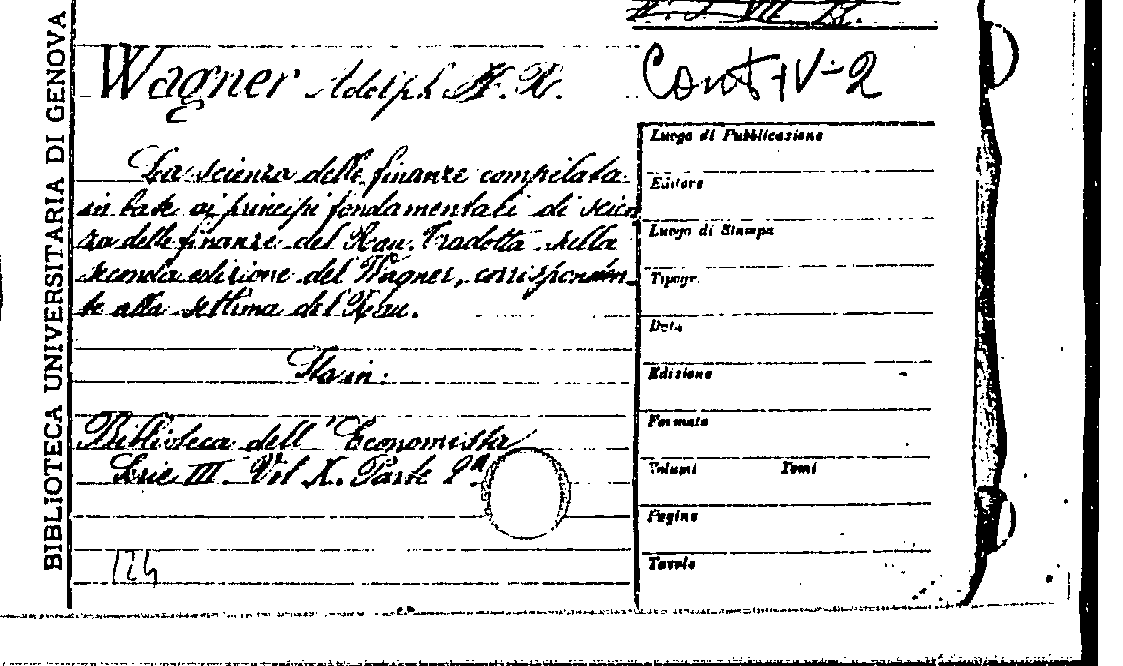 BIBLIOTECA UNIVERSITARIA DI GENOVA
Wagner Adolph H. R.
Cont IV-2
La scienza delle finanze compilata
in base ai principi fondamentali di scien
za delle finanze del Rau. Tradotta sulla
seconda edizione del Wagner, corrisponden-
te alla settima del Rau.
Sta in:
Biblioteca dell'Economista
Serie III. Vol X. Parte 2ª
124
Luogo di Pubblicazione
Editore
Luogo di Stampa
Tipogr.
Data
Edizione
Formato
Volumi Tomi
Pagine
Tavole